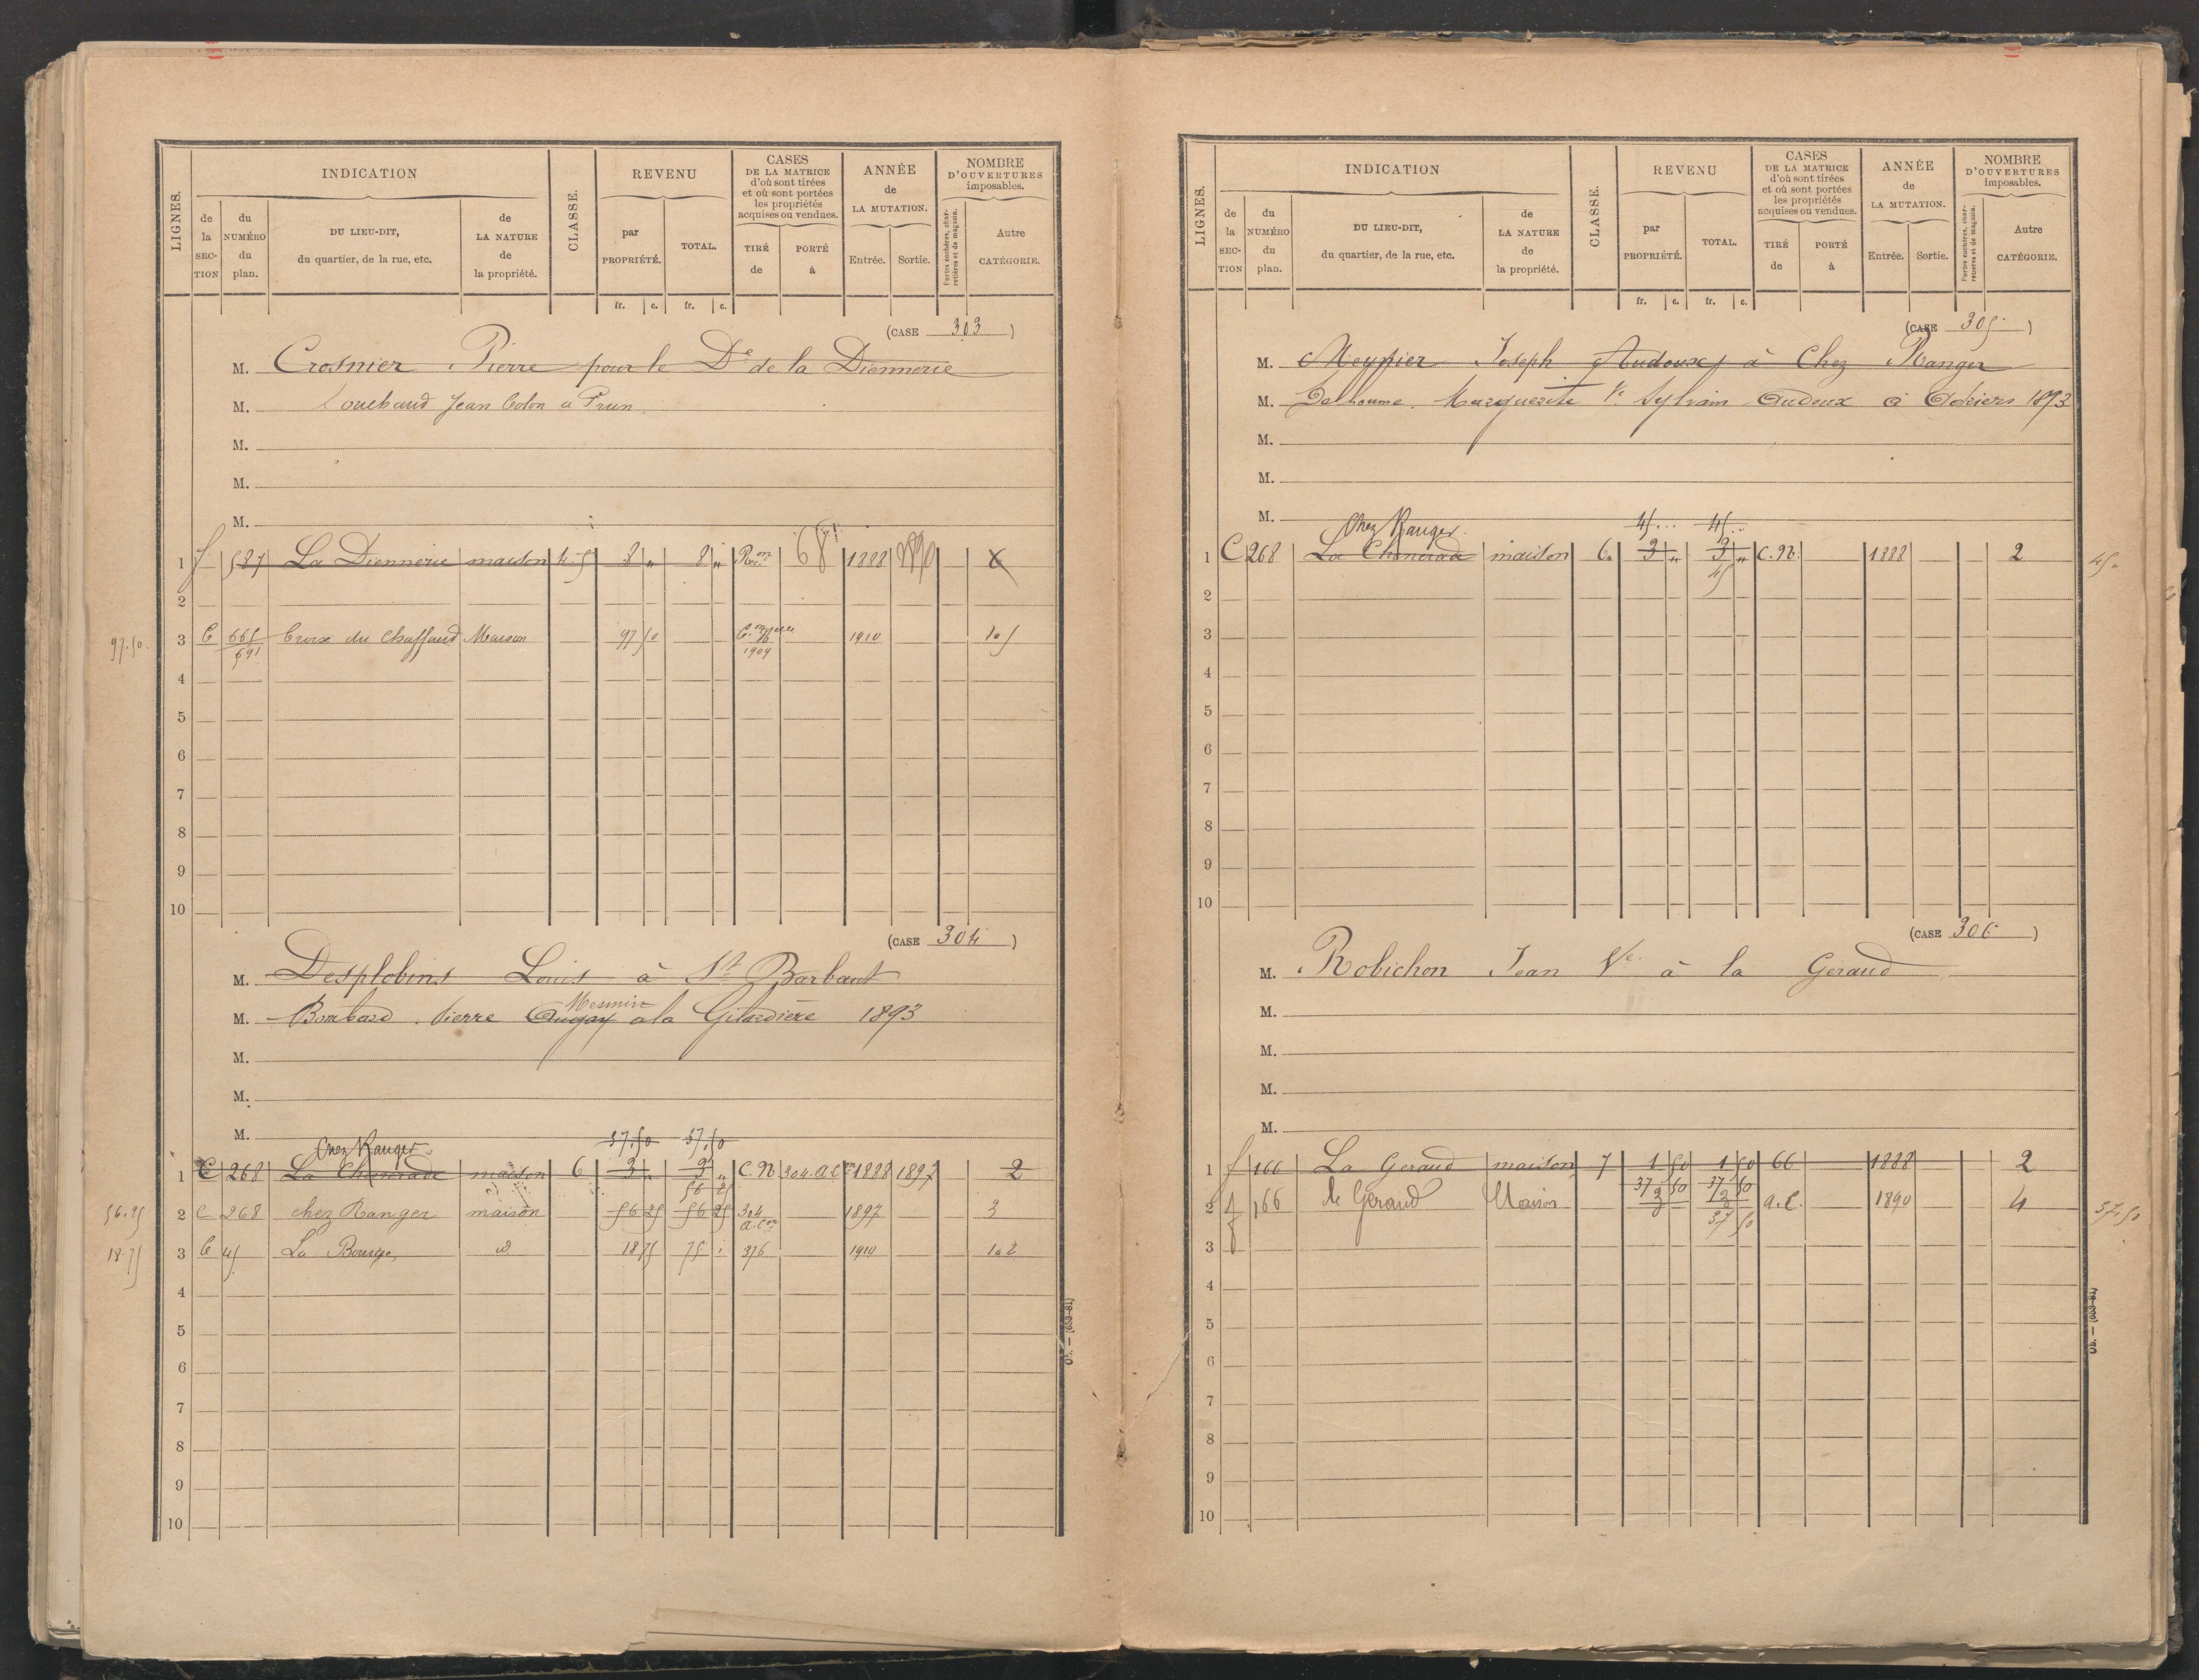 LIGNES.
INDICATION
de la SECTION
du NUMÉRO du plan.
DU LIEU-DIT, du quartier, de la rue, etc.
de LA NATURE de la propriété.
CLASSE.
REVENU
par PROPRIÉTÉ.
TOTAL.
CASES DE LA MATRICE d'où sont tirées et où sont portées les propriétés acquises ou vendues.
TIRÉ de
PORTÉ à
ANNÉE de LA MUTATION.
Entrée.
Sortie.
NOMBRE D'OUVERTURES imposables.
Portes cochères, charretières et de magasin.
Autre CATÉGORIE.
fr. c. fr. c.
(CASE 303)
M. Crosnier Pierre pour le De de la Diennerie
M. Louchaud Jean Colon a Prun
M.
M.
M.
1 f 587 La Diennerie maison 4-5 8 " 8 " Ron 68 1888 1890 X
2
97.50 3 C 665 Croix du Chaffaud Maison 97 50 1910 105
691 1909
4
5
6
7
8
9
10
(CASE 304)
M. Desplobins Louis à St Barbant
Mesmin
M. Bombard Pierre Augay a la Gilardière 1893
M.
M.
M.
Chez Ranger 37.50 37.50
1 C 268 La Chanerade maison 6 3 " 3 " C.N 304 a.C 1888 1897 2
56 25
56.25 2 C 268 chez Ranger maison 56 25 56 25 304 a.Con 1897 3
18-75 3 C 45 La Bouige, d 18 75 75 376 1910 1 a 2
4
5
6
7
8
9
10
(653-81)
LIGNES.
INDICATION
de la SECTION
du NUMÉRO du plan.
DU LIEU-DIT, du quartier, de la rue, etc.
de LA NATURE de la propriété.
CLASSE.
REVENU
par PROPRIÉTÉ.
TOTAL.
CASES DE LA MATRICE d'où sont tirées et où sont portées les propriétés acquises ou vendues.
TIRÉ de
PORTÉ à
ANNÉE de LA MUTATION.
Entrée.
Sortie.
NOMBRE D'OUVERTURES imposables.
Portes cochères, charretières et de magasin.
Autre CATÉGORIE.
fr. c. fr. c.
(CASE 305)
M. Meynier Joseph Audoux à Chez Ranger
M. Delhoume Marguerite Ve Sylvain Audoux à Adriers 1893
M.
M.
M.
Chez Ranger 45 .. 45 ..
1 C 268 La Chanerade maison 6 3 " 3 " C.N. 1888 2 45.
45
2
3
4
5
6
7
8
9
10
(CASE 306)
M. Robichon Jean Ve à la Geraud
M.
M.
M.
M.
1 f 166 La Geraud maison 7 1 50 1 50 66 1888 2
37 50 37 50
2 f 166 le Geraud Maison 3 3 a.C. 1890 4 37.50
37 50
3
4
5
6
7
8
9
10